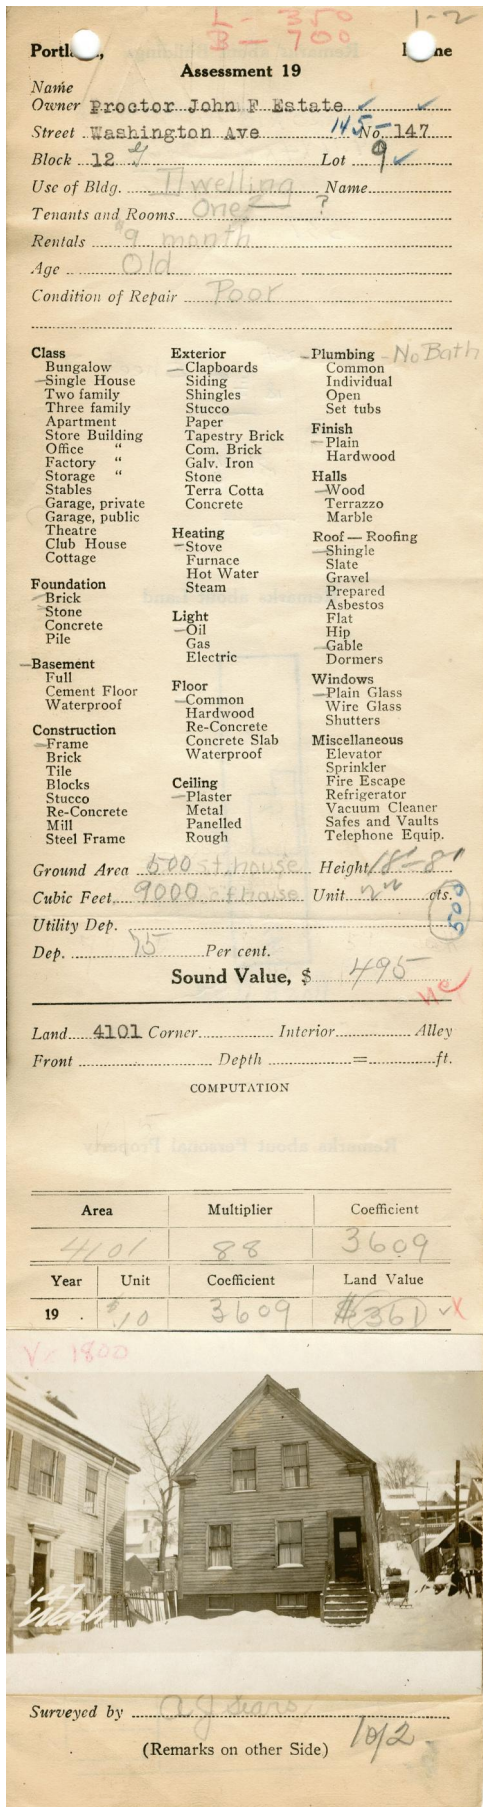 L - 350
B - 700
1-2
Portland, Maine
Assessment 19
Name
Owner Proctor John F Estate
Street Washington Ave 145- No. 147
Block 12 Lot 9
Use of Bldg. Dwelling Name
Tenants and Rooms One ?
Rentals $9 month
Age Old
Condition of Repair Poor
Class
Bungalow
Single House
Two family
Three family
Apartment
Store Building
Office "
Factory "
Storage "
Stables
Garage, private
Garage, public
Theatre
Club House
Cottage
Foundation
Brick
Stone
Concrete
Pile
Basement
Full
Cement Floor
Waterproof
Construction
Frame
Brick
Tile
Blocks
Stucco
Re-Concrete
Mill
Steel Frame
Exterior
Clapboards
Siding
Shingles
Stucco
Paper
Tapestry Brick
Com. Brick
Galv. Iron
Stone
Terra Cotta
Concrete
Heating
Stove
Furnace
Hot Water
Steam
Light
Oil
Gas
Electric
Floor
Common
Hardwood
Re-Concrete
Concrete Slab
Waterproof
Ceiling
Plaster
Metal
Panelled
Rough
Plumbing - No Bath
Common
Individual
Open
Set tubs
Finish
Plain
Hardwood
Halls
Wood
Terrazzo
Marble
Roof — Roofing
Shingle
Slate
Gravel
Prepared
Asbestos
Flat
Hip
Gable
Dormers
Windows
Plain Glass
Wire Glass
Shutters
Miscellaneous
Elevator
Sprinkler
Fire Escape
Refrigerator
Vacuum Cleaner
Safes and Vaults
Telephone Equip.
Ground Area 500 sf. house Height 18'-8'
Cubic Feet, 9000 cf house Unit 22 cts.
500
Utility Dep.
Dep. 75 Per cent.
Sound Value, $ 495
Land 4101 Corner Interior Alley
Front Depth = ft.
COMPUTATION
Area Multiplier Coefficient
4101 88 3609
Year Unit Coefficient Land Value
19 $.10 3609 $361
1800
147
Wash
Surveyed by A J Sears
(Remarks on other Side) 10/2